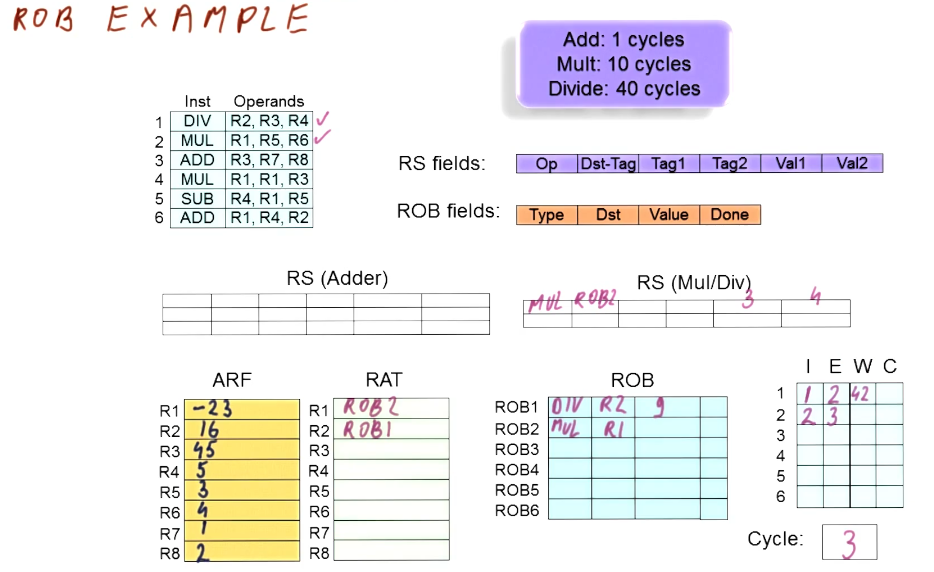 ROB EXAMPLE
Add: 1 cycles
Mult: 10 cycles
Divide: 40 cycles
Inst Operands
1 DIV R2, R3, R4 ✓
2 MUL R1, R5, R6 ✓
3 ADD R3, R7, R8
4 MUL R1, R1, R3
5 SUB R4, R1, R5
6 ADD R1, R4, R2
RS fields: Op Dst-Tag Tag1 Tag2 Val1 Val2
ROB fields: Type Dst Value Done
RS (Adder)
RS (Mul/Div)
MUL ROB2 3 4
ARF
R1 -23
R2 16
R3 45
R4 5
R5 3
R6 4
R7 1
R8 2
RAT
R1 ROB2
R2 ROB1
R3
R4
R5
R6
R7
R8
ROB
ROB1 DIV R2 9
ROB2 MUL R1
ROB3
ROB4
ROB5
ROB6
I E W C
1 1 2 42
2 2 3
3
4
5
6
Cycle: 3